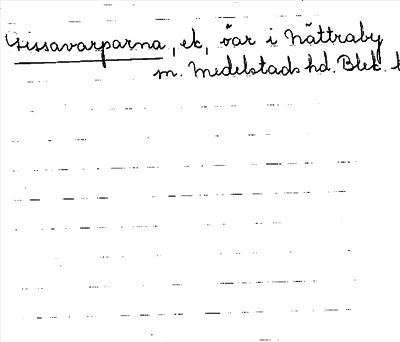 Gissavarparna, ek, öar i Nättraby
m. Medelstads hd. Blek.